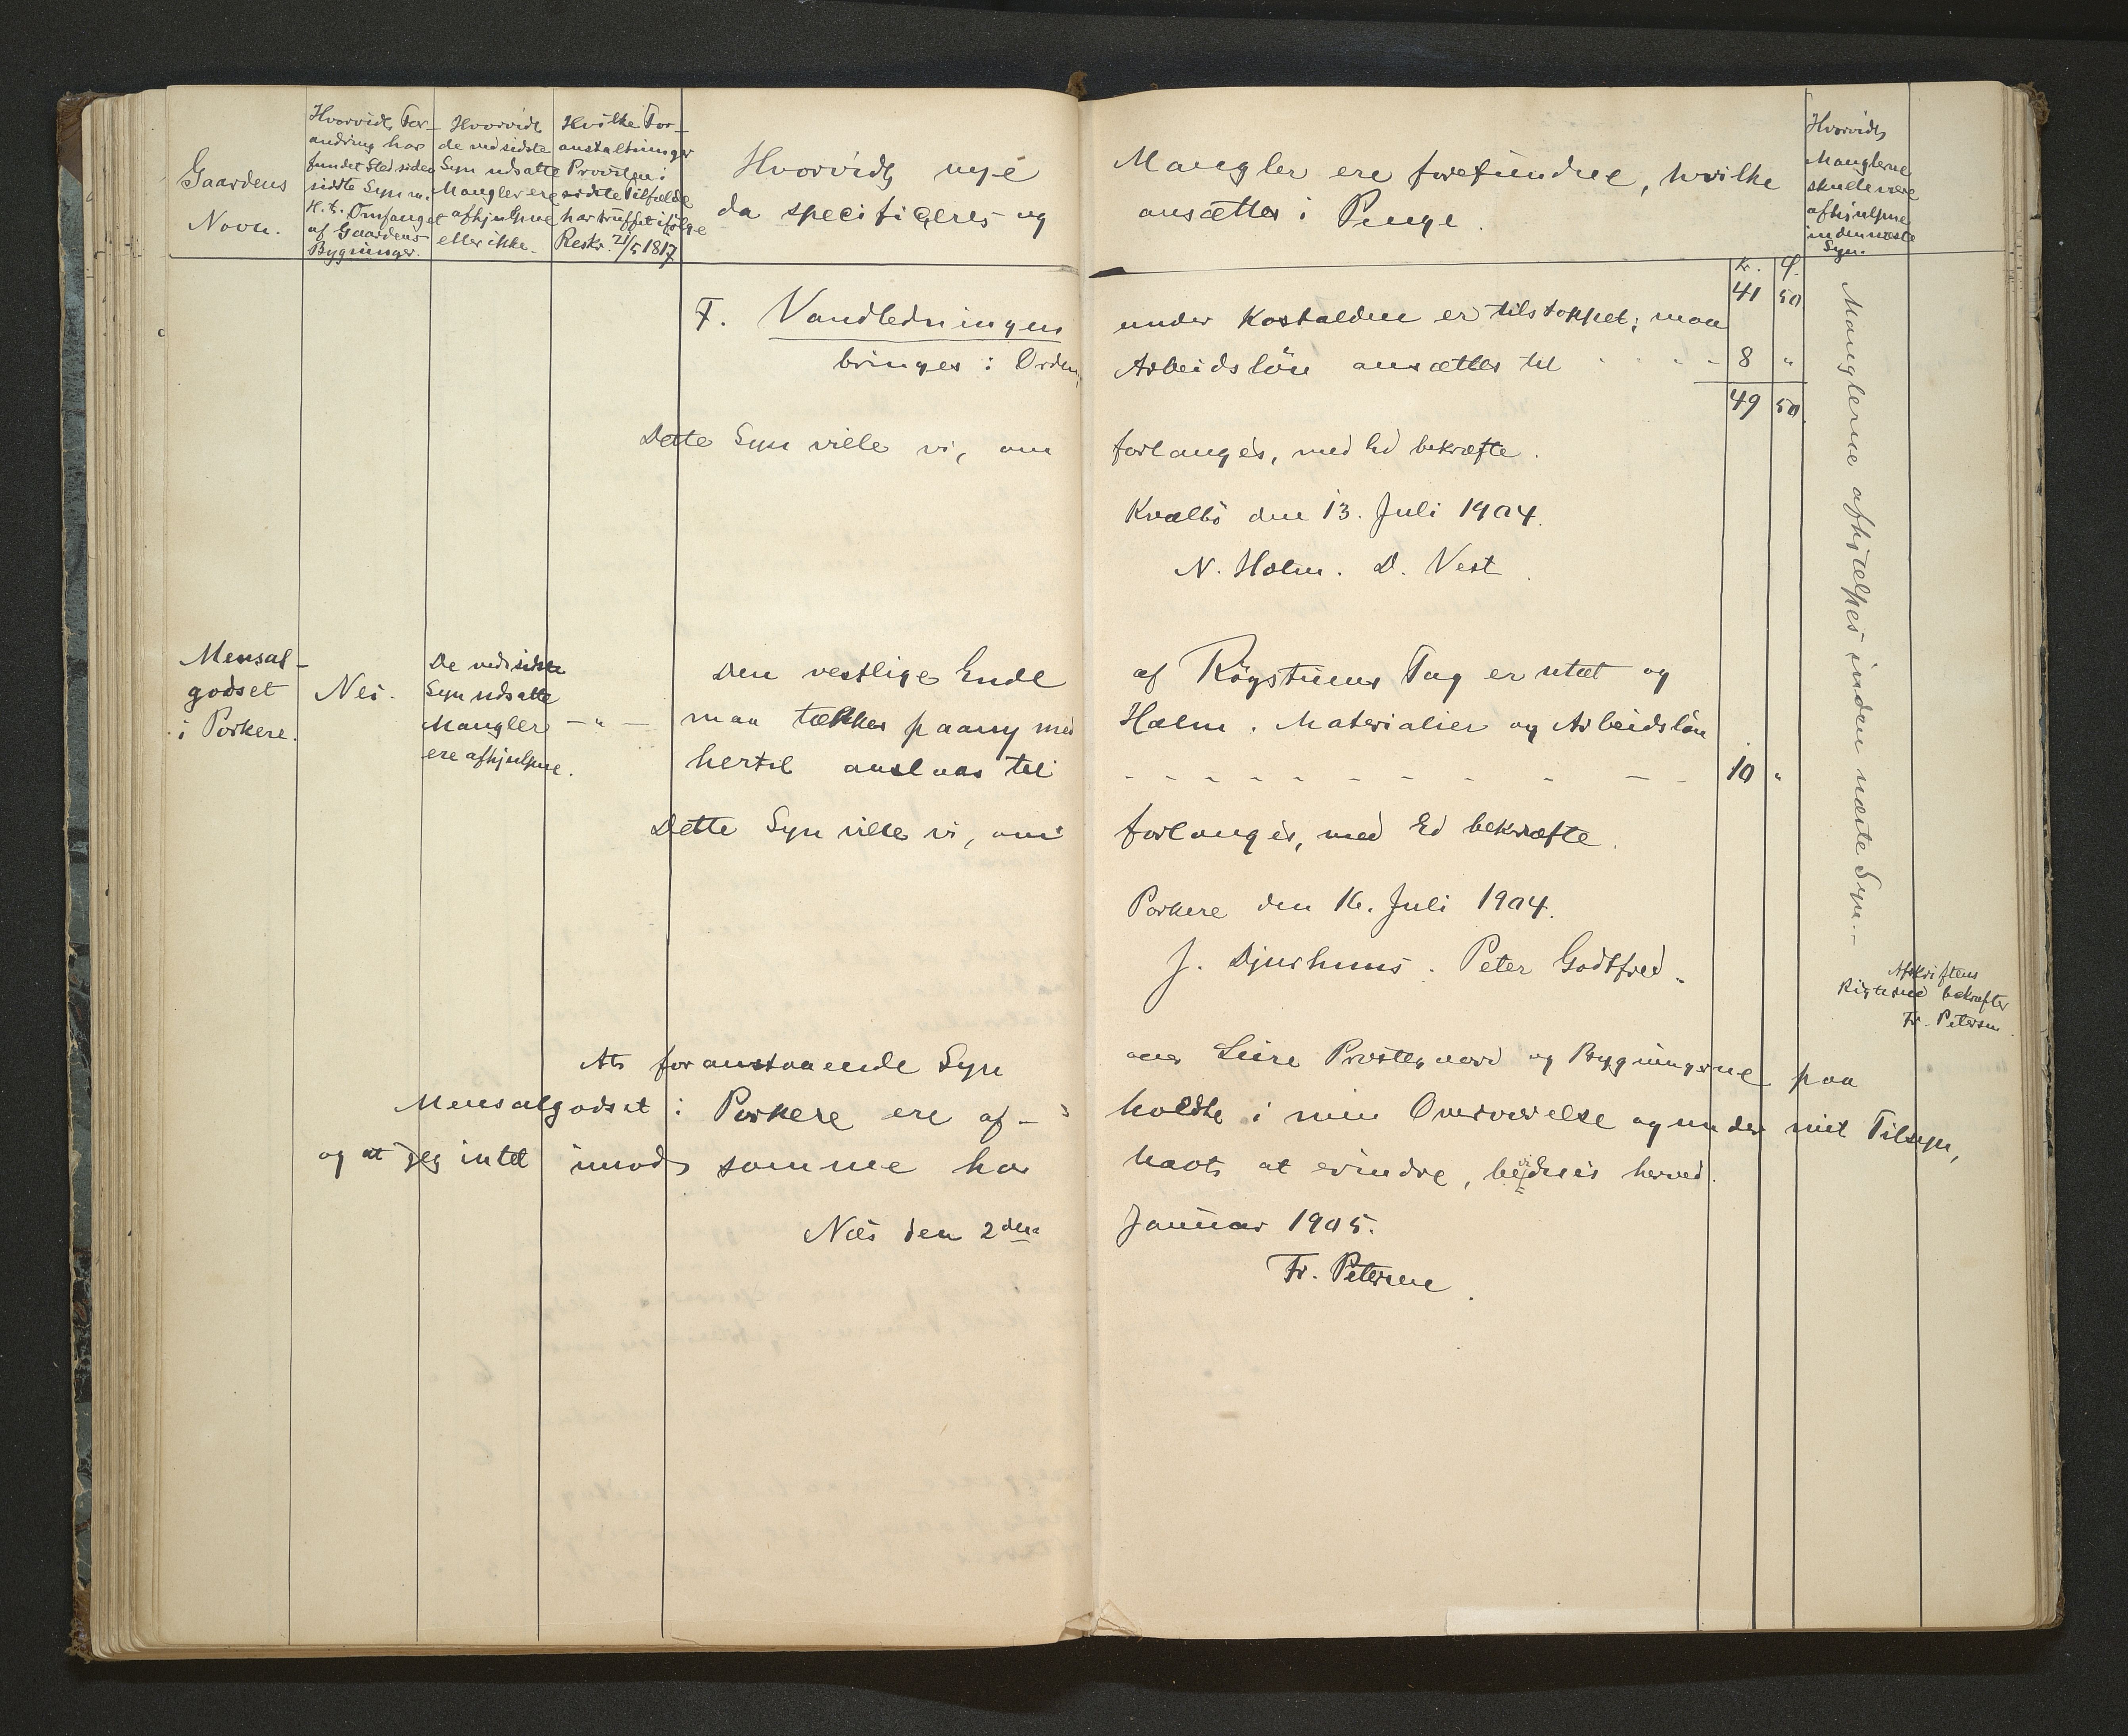 Gaardens
Navn.
Hvorvidt For-
andring har
fundet Sted siden
sidste Syn m.
H. t. Omfanget
af Gaardens
Bygninger.
Hvorvidt
de ved sidste
Syn udsatte
Mangler ere
afhjulpne
eller ikke.
Hvilke For-
anstaltninger
Provsten i
sidste Tilfælde
har truffet ifølge
Reskr. 21/5 1817
Hvorvidt nye Mangler ere forefundne, hvilke
da specificeres og ansættes i Penge.
Hvorvidt
Manglerne
skulle være
afhjulpne
inden næste
Syn.
Kr.
41 50
F. Vandledningen under Kostalden er tilstoppet; maa
bringes i Orden, Arbeidslön ansættes til 8 "
49 50
Dette Syn ville vi, om forlanges, med Ed bekræfte.
Kvalbö den 13. Juli 1904.
N. Holm. D. Vest.
Manglerne afhjælpes inden næste Syn.
Mensal-
godset
i Porkere.
Nei.
De ved sidste
Syn udsatte
Mangler
ere afhjulpne.
— " —
Den vestlige Ende af Rögstuens Tag er utæt og
maa tækkes paany med Halm. Materialier og Arbeidslön
hertil anslaas til 10 "
Dette Syn ville vi, om forlanges, med Ed bekræfte.
Porkere den 16. Juli 1904.
J. Djurhuus. Peter Godtfred.
Afskriftens
Rigtighed bekræfter
Fr. Petersen.
At foranstaaende Syn over Præstegaard og Bygningerne paa
Mensalgodset i Porkere ere af- holdte i min Overværelse og under mit Tilsyn,
og at jeg intet imod samme har havt at erindre, bevidnes herved.
Næs den 2den Januar 1905.
Fr. Petersen.